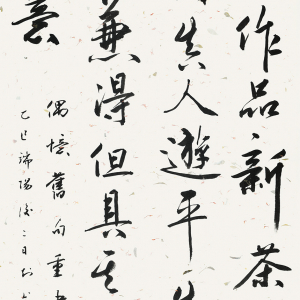 作品新茶
真人遊平
兼得但具
意
偶憶舊句重
乙巳端陽後二日於